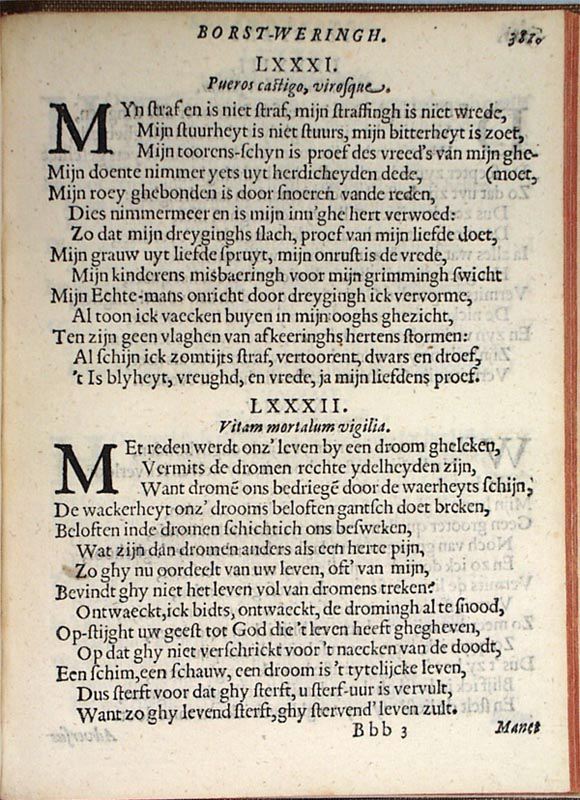 BORST-WERINGH. 381.
LXXXI.
Pueros castigo, virosque.
MYn straf en is niet straf, mijn straffingh is niet wrede,
Mijn stuurheyt is niet stuurs, mijn bitterheyt is zoet,
Mijn toorens-schyn is proef des vreed's van mijn ghe-
Mijn doente nimmer yets uyt herdicheyden dede, (moet,
Mijn roey ghebonden is door snoeren vande reden,
Dies nimmermeer en is mijn inn'ghe hert verwoed:
Zo dat mijn dreyginghs slach, proef van mijn liefde doet,
Mijn grauw uyt liefde spruyt, mijn onrust is de vrede,
Mijn kinderens misbaeringh voor mijn grimmingh swicht
Mijn Echte-mans onricht door dreygingh ick vervorme,
Al toon ick vaecken buyen in mijn ooghs ghezicht,
Ten zijn geen vlaghen van afkeeringhs hertens stormen:
Al schijn ick zomtijts straf, vertoorent, dwars en droef,
't Is blyheyt, vreughd, en vrede, ja mijn liefdens proef.
LXXXII.
Vitam mortalum vigilia.
MEt reden werdt onz' leven by een droom gheleken,
Vermits de dromen rechte ydelheyden zijn,
Want dromē ons bedriegē door de waerheyts schijn;
De wackerheyt onz' drooms beloften gantsch doet breken,
Beloften inde dromen schichtich ons besweken,
Wat zijn dan dromen anders als een herte pijn,
Zo ghy nu oordeelt van uw leven, oft' van mijn,
Bevindt ghy niet het leven vol van dromens treken?
Ontwaeckt, ick bidts, ontwaeckt, de dromingh al te snood,
Op-stijght uw geest tot God die 't leven heeft ghegheven,
Op dat ghy niet verschrickt voor 't naecken van de doodt,
Een schim, een schauw, een droom is 't tytelijcke leven,
Dus sterft voor dat ghy sterft, u sterf-uur is vervult,
Want zo ghy levend sterft, ghy stervend' leven zult.
Bbb 3 Manet